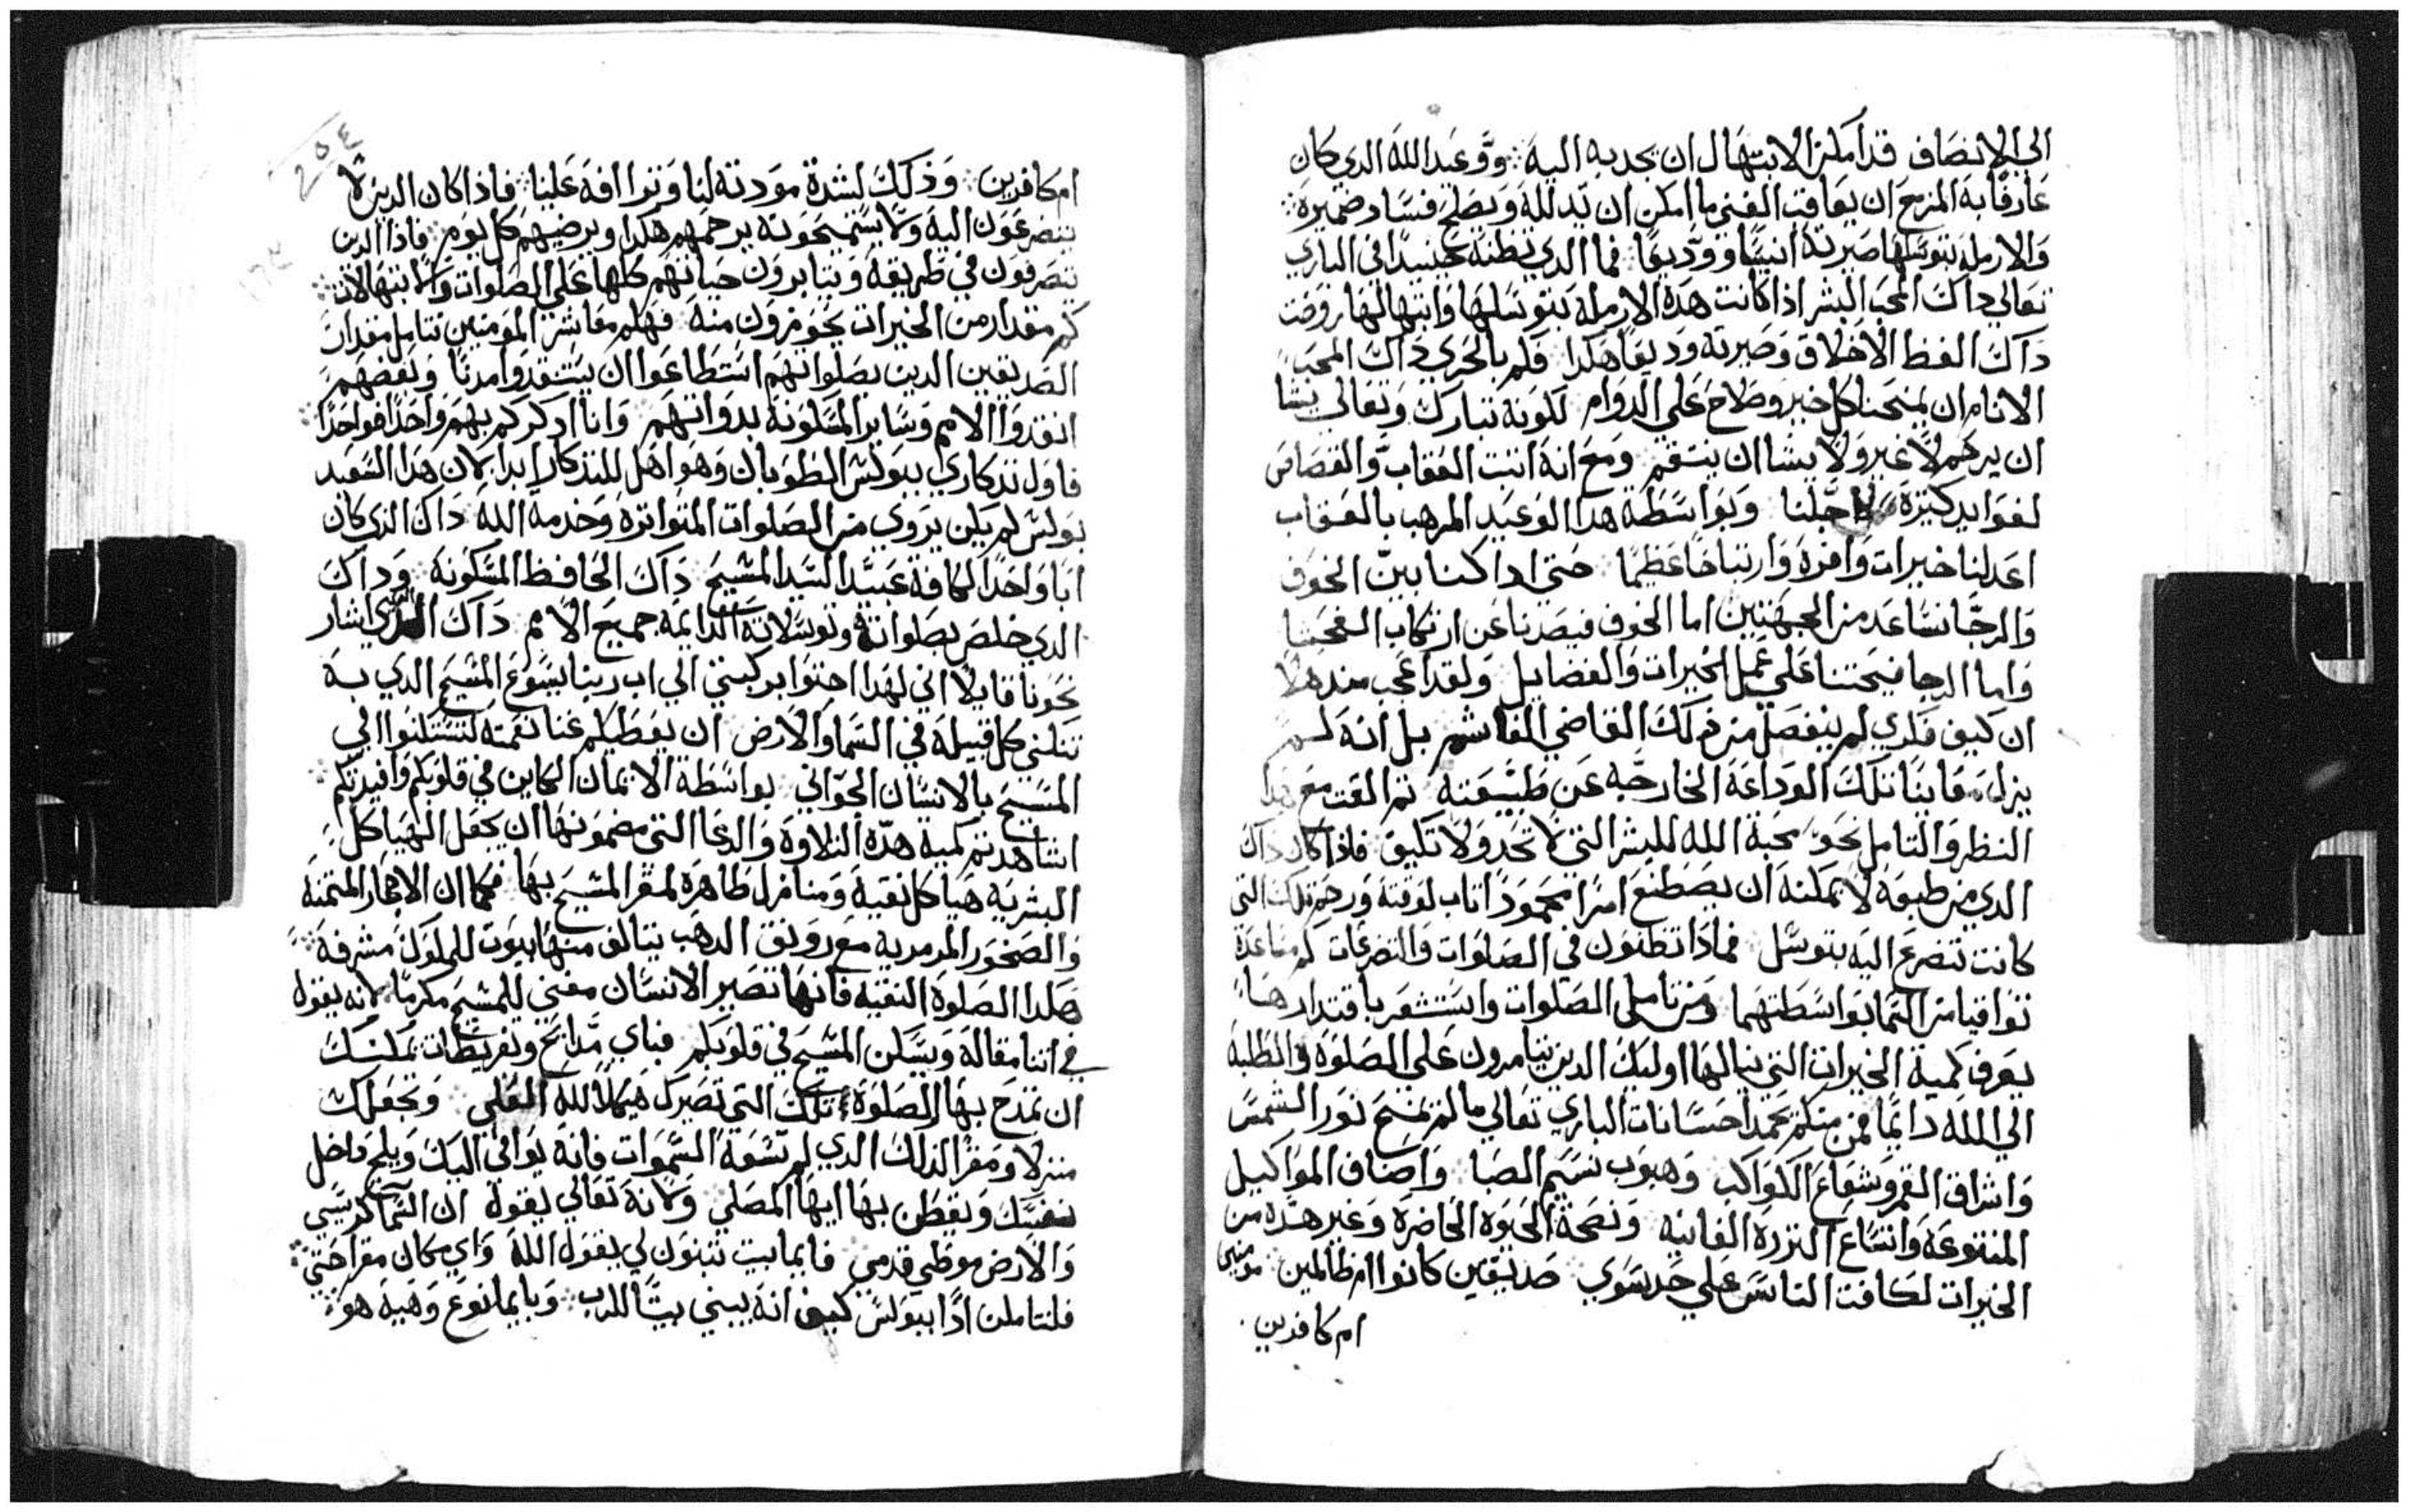 الي الانصاف قد امكن الابتهال ان يجدبه اليه وّوعبد الله الدي كان
عارفًا به المزمع ان يعاقب الغني ما امكن ان يّدلله ويصلح فساد ضميره
والارمله بتوسلها صيرته انيسًا ووّديعًا فما الدي نظنه عنيدًا في الباري
تعالي داك المحب البشر اذا كانت هده الارمله بتوسلها وابتهالها روضت
داك الفظ الاخلاق وصيرته وديعًا هكدا فكم بالحري داك المحب
الانام ان يمنحنا كل خير وصلاح علي الدوام لكونه تبارك وتعالي يشا
ان يرحم لا غير ولا يشا ان ينتقم ومع انه اثبت العقاب والقصاص
لفوايد كتيرة لاجلنا وبواسطة هدا الوعيد المرهب بالعقاب
اعد لنا خيرات وافرة وارتياحًا عظيمًا حتي ادا كنا بين الخوف
والرجا نساعد من الجهتين اما الخوف فيصدنا عن ارتكاب الفحشا
واما الرجا فيحتنا علي عمل الخيرات والفضايل ولقد اعجب مندهلًا
ان كيف فكري لم ينفصل من دلك القاضي الغاشم بل انه لم
يزل معاينًا تلك الوداعة الخارجه عن طبيعته تم القت مع هدا
النظر والتامل نحو محبة الله للبشر التي لا تحد ولا تكيف فاذا كان داك
الدي من طبعه لا يمكنه ان يصطنع امرًا محمودًا تاب لوقته ورحم تلك التي
كانت تتضرع اليه بتوسل فماذا تظنون في الصلوات والتضرعات كم مساعدة
توافينا من السما بواسطتهما ومن تامل الصلوات واستشعر باقتدارها
يعرف كمية الخيرات التي ينالها اوليك الدين يتامرون علي الصلوة والطلبة
الي الله دايمًا فمن منكم يجد احسانات الباري تعالي ما لم يمنح نور الشمس
واشراق القمر وشعاع الكواكب وهبوب نسيم الصبا واصناف المواكيل
المتنوعة واتساع الثروة الفانيه ونصحة الحيوة الحاضرة وغير هذه من
الخيرات لكافت الناس علي حد سوي صديقين كانوا ام ظالمين مومنين
ام كافرين
٢٥٤
ام كافرين وذلك لشدة مودته لنا وتراافه علينا فاذا كان الدين لا
يتضرعون اليه ولا يستميحونه يرحمهم هكدا ويرضيهم كل يوم فاذا الدين
يتصرفون في طريقه ويتابرون حياتهم كلها علي الصلوات والابتهالات
كم مقدار من الخيرات يحوزون منه فهلم معاشر المومنين نتامل مقدار
الصديقين الدين بصلواتهم استطاعوا ان يستنقدوا مدنًا وبعضهم
انقدوا الامم وساير المسكونة بدواتهم وانا ادكركم بهم واحدًا فواحدًا
فاول تدكاري ببولس الطوبان وهو اهل للتدكار ابدا لان هدا السعيد
بولس لم يكن يروي من الصلوات المتواترة وخدمه الله داك الذي كان
ابًا واحدًا لكافة عبيد السيد المسيح داك الحافظ المسكونه وداك
الدي خلص بصلواته وتوسلاته الدايمة جميع الامم داك الدي اشار
نحونا قايلًا اني لهدا احتوا بركبتي الي اب ربنا يسوع المسيح الدي به
تتلني كل قبيلة في السما والارض ان يعطيكم غنا نعمته لتشتدوا الي
المسيح بالانسان الجواني بواسطة الايمان الكاين في قلوبكم وافيدتكم
اشاهدتم كمية هده التلاوة والدعا التي مضمونها ان يجعل الهياكل
البشرية هياكل نقية ومنازل طاهرة لمقر المسيح بها فكما ان الاحجار المتمنه
والصخور المرمرية مع رونق الدهب يتالف منها بيوت للملوك مشرفة
هكدا الصلوة النقيه فانها تصير الانسان مغني للمسيح مكرمًا لانه يقول
في اتنا مقالة ويسكن المسيح في قلوبكم فباي مدايح وتقريظات يمكنك
ان تمدح بها الصلوة تلك التي تصيرك هيكلًا لله العلي وتجعلك
منزلًا ومقرًا لذلك الدي لم تسعه السموات فانه يوافي اليك ويلج داخل
نفسك ويقطن بها ايها المصلي ولانه تعالي يقول ان السما كرسيي
والارض موطي قدمي فايما بيت تبنون لي يقول الله واي مكان مقر احتي
فلنتاملن ادًا ببولس كيف انه يبني بيتًا للرب وبايما نوع وهيه هو